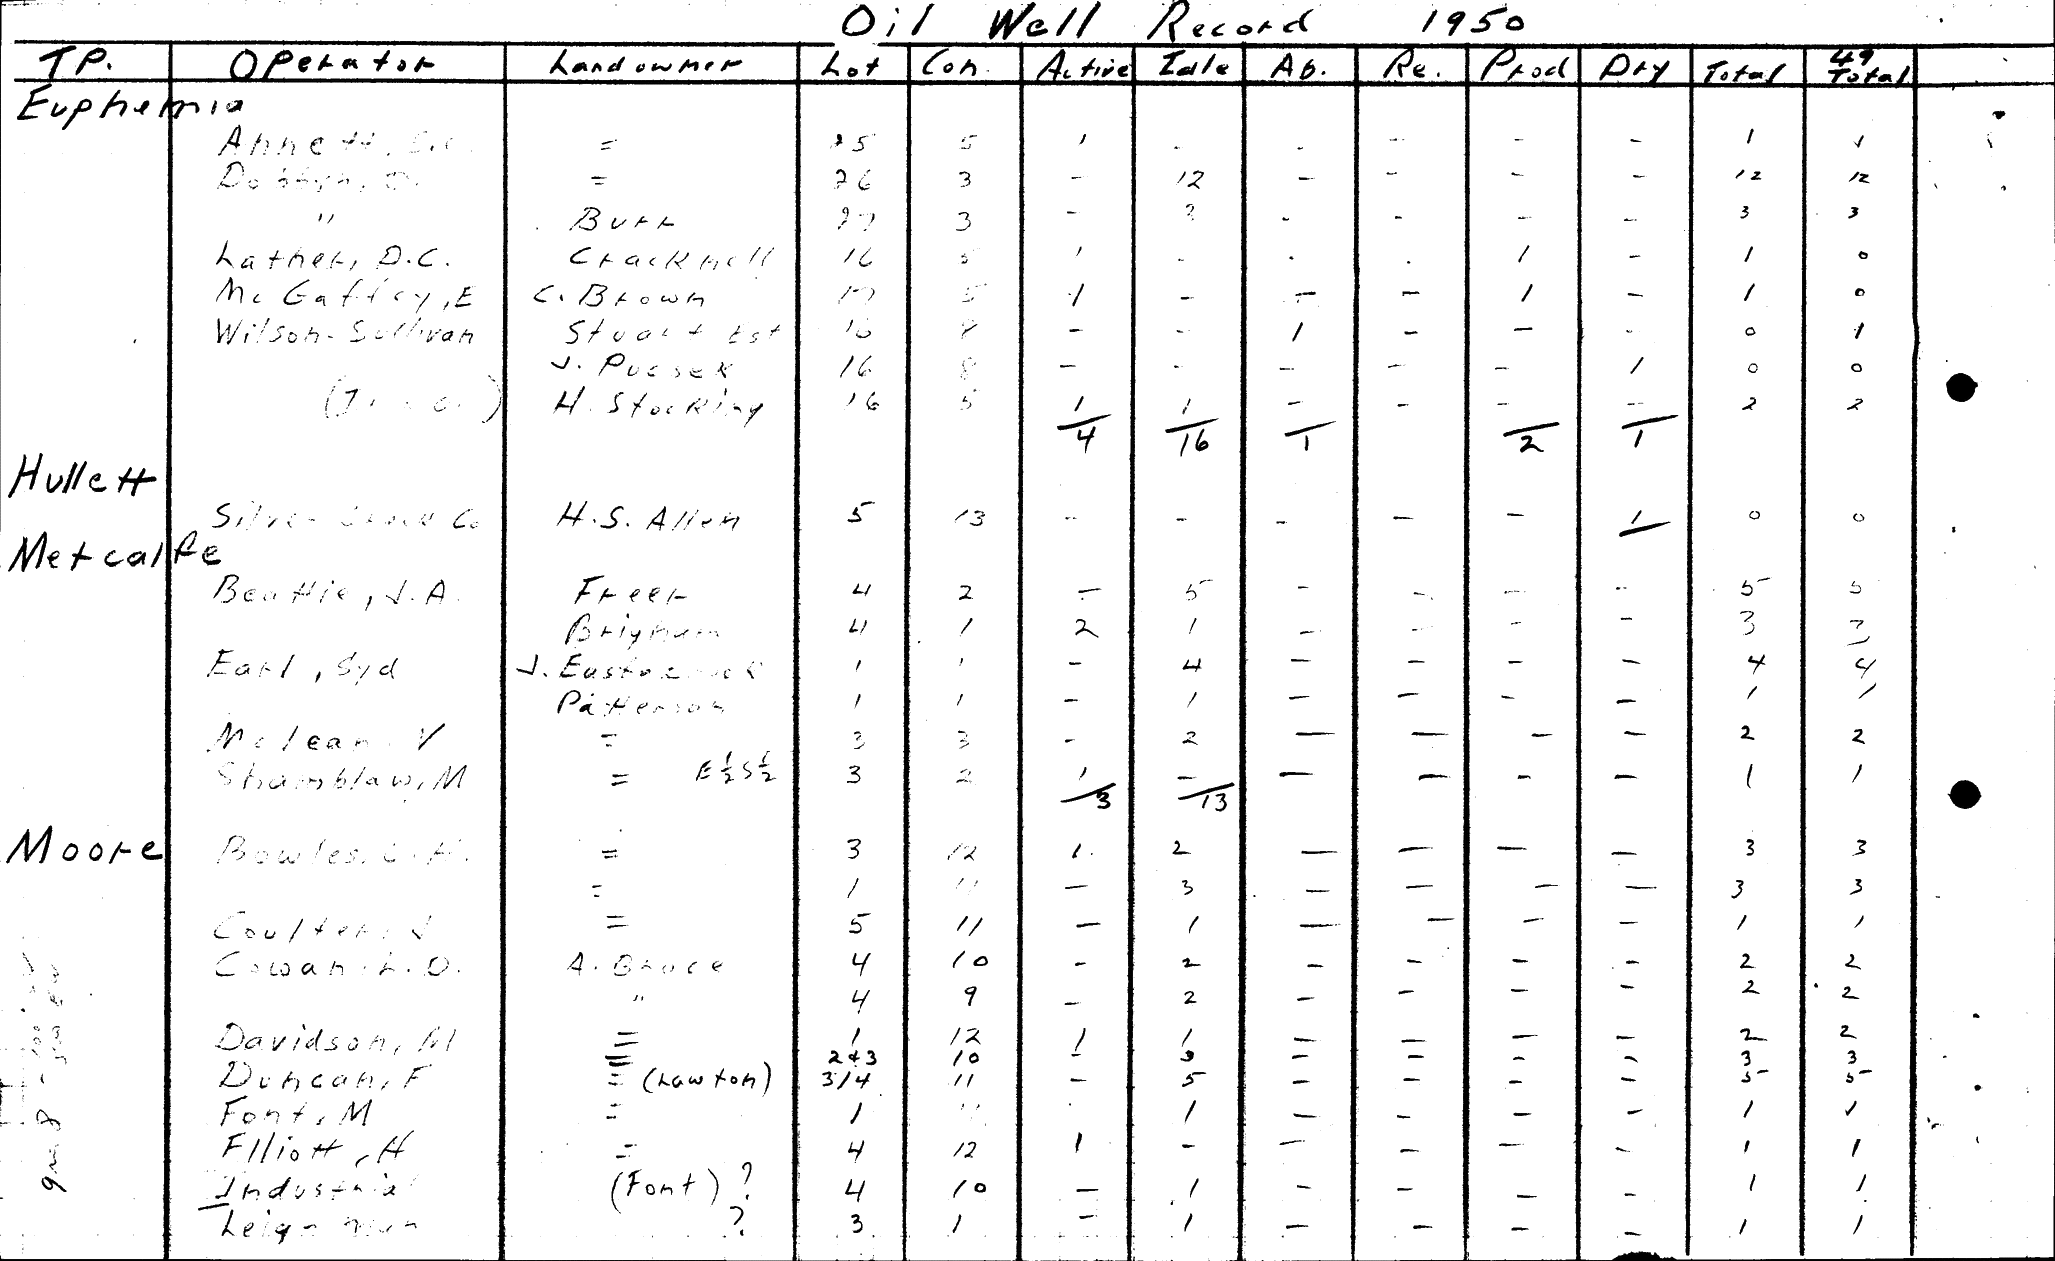 Oil Well Record 1950
TP. Operator Landowner Lot Con. Active Idle Ab. Re. Prod Dry Total 49 Total
Euphemia
Annett, = 25 5 1 - - - - - 1 1
Dobbyn, D. = 26 3 - 12 - - - - 12 12
" Burr 27 3 - 3 - - - - 3 3
Lather, D.C. Cracknell 16 5 1 - - - 1 - 1 0
McGaffey, E C. Brown 17 5 1 - - - 1 - 1 0
Wilson-Sullivan Stuart Est 16 8 - - 1 - - - 0 1
J. Pucsek 16 8 - - - - - 1 0 0
H. Stocking 16 5 1 1 - - - - 2 2
4 16 1 2 1
Hullett
Silver Co H.S. Allen 5 13 - - - - - 1 0 0
Metcalfe
Beattie, J.A. Freer 4 2 - 5 - - - - 5 5
Brigham 4 1 2 1 - - - - 3 3
Earl, Syd J. Eastabrook 1 1 - 4 - - - - 4 4
Patterson 1 1 - 1 - - - - 1 1
McLean, V = 3 3 - 2 - - - - 2 2
Shamblaw, M = E½S½ 3 2 1 - - - - - 1 1
3 13
Moore Bowles, = 3 12 1 2 - - - - 3 3
= 1 11 - 3 - - - - 3 3
Coulter, J = 5 11 - 1 - - - - 1 1
Cowan, L.D. A. Bruce 4 10 - 2 - - - - 2 2
" 4 9 - 2 - - - - 2 2
Davidson, M = 1 12 1 1 - - - - 2 2
= 2&3 10 - 3 - - - - 3 3
Duncan, F = (Lawton) 3/4 11 - 5 - - - - 5 5
Font, M = 1 11 - 1 - - - - 1 1
Elliott, H = 4 12 1 - - - - - 1 1
Industrial (Font) ? 4 10 - 1 - - - - 1 1
? 3 1 - 1 - - - - 1 1